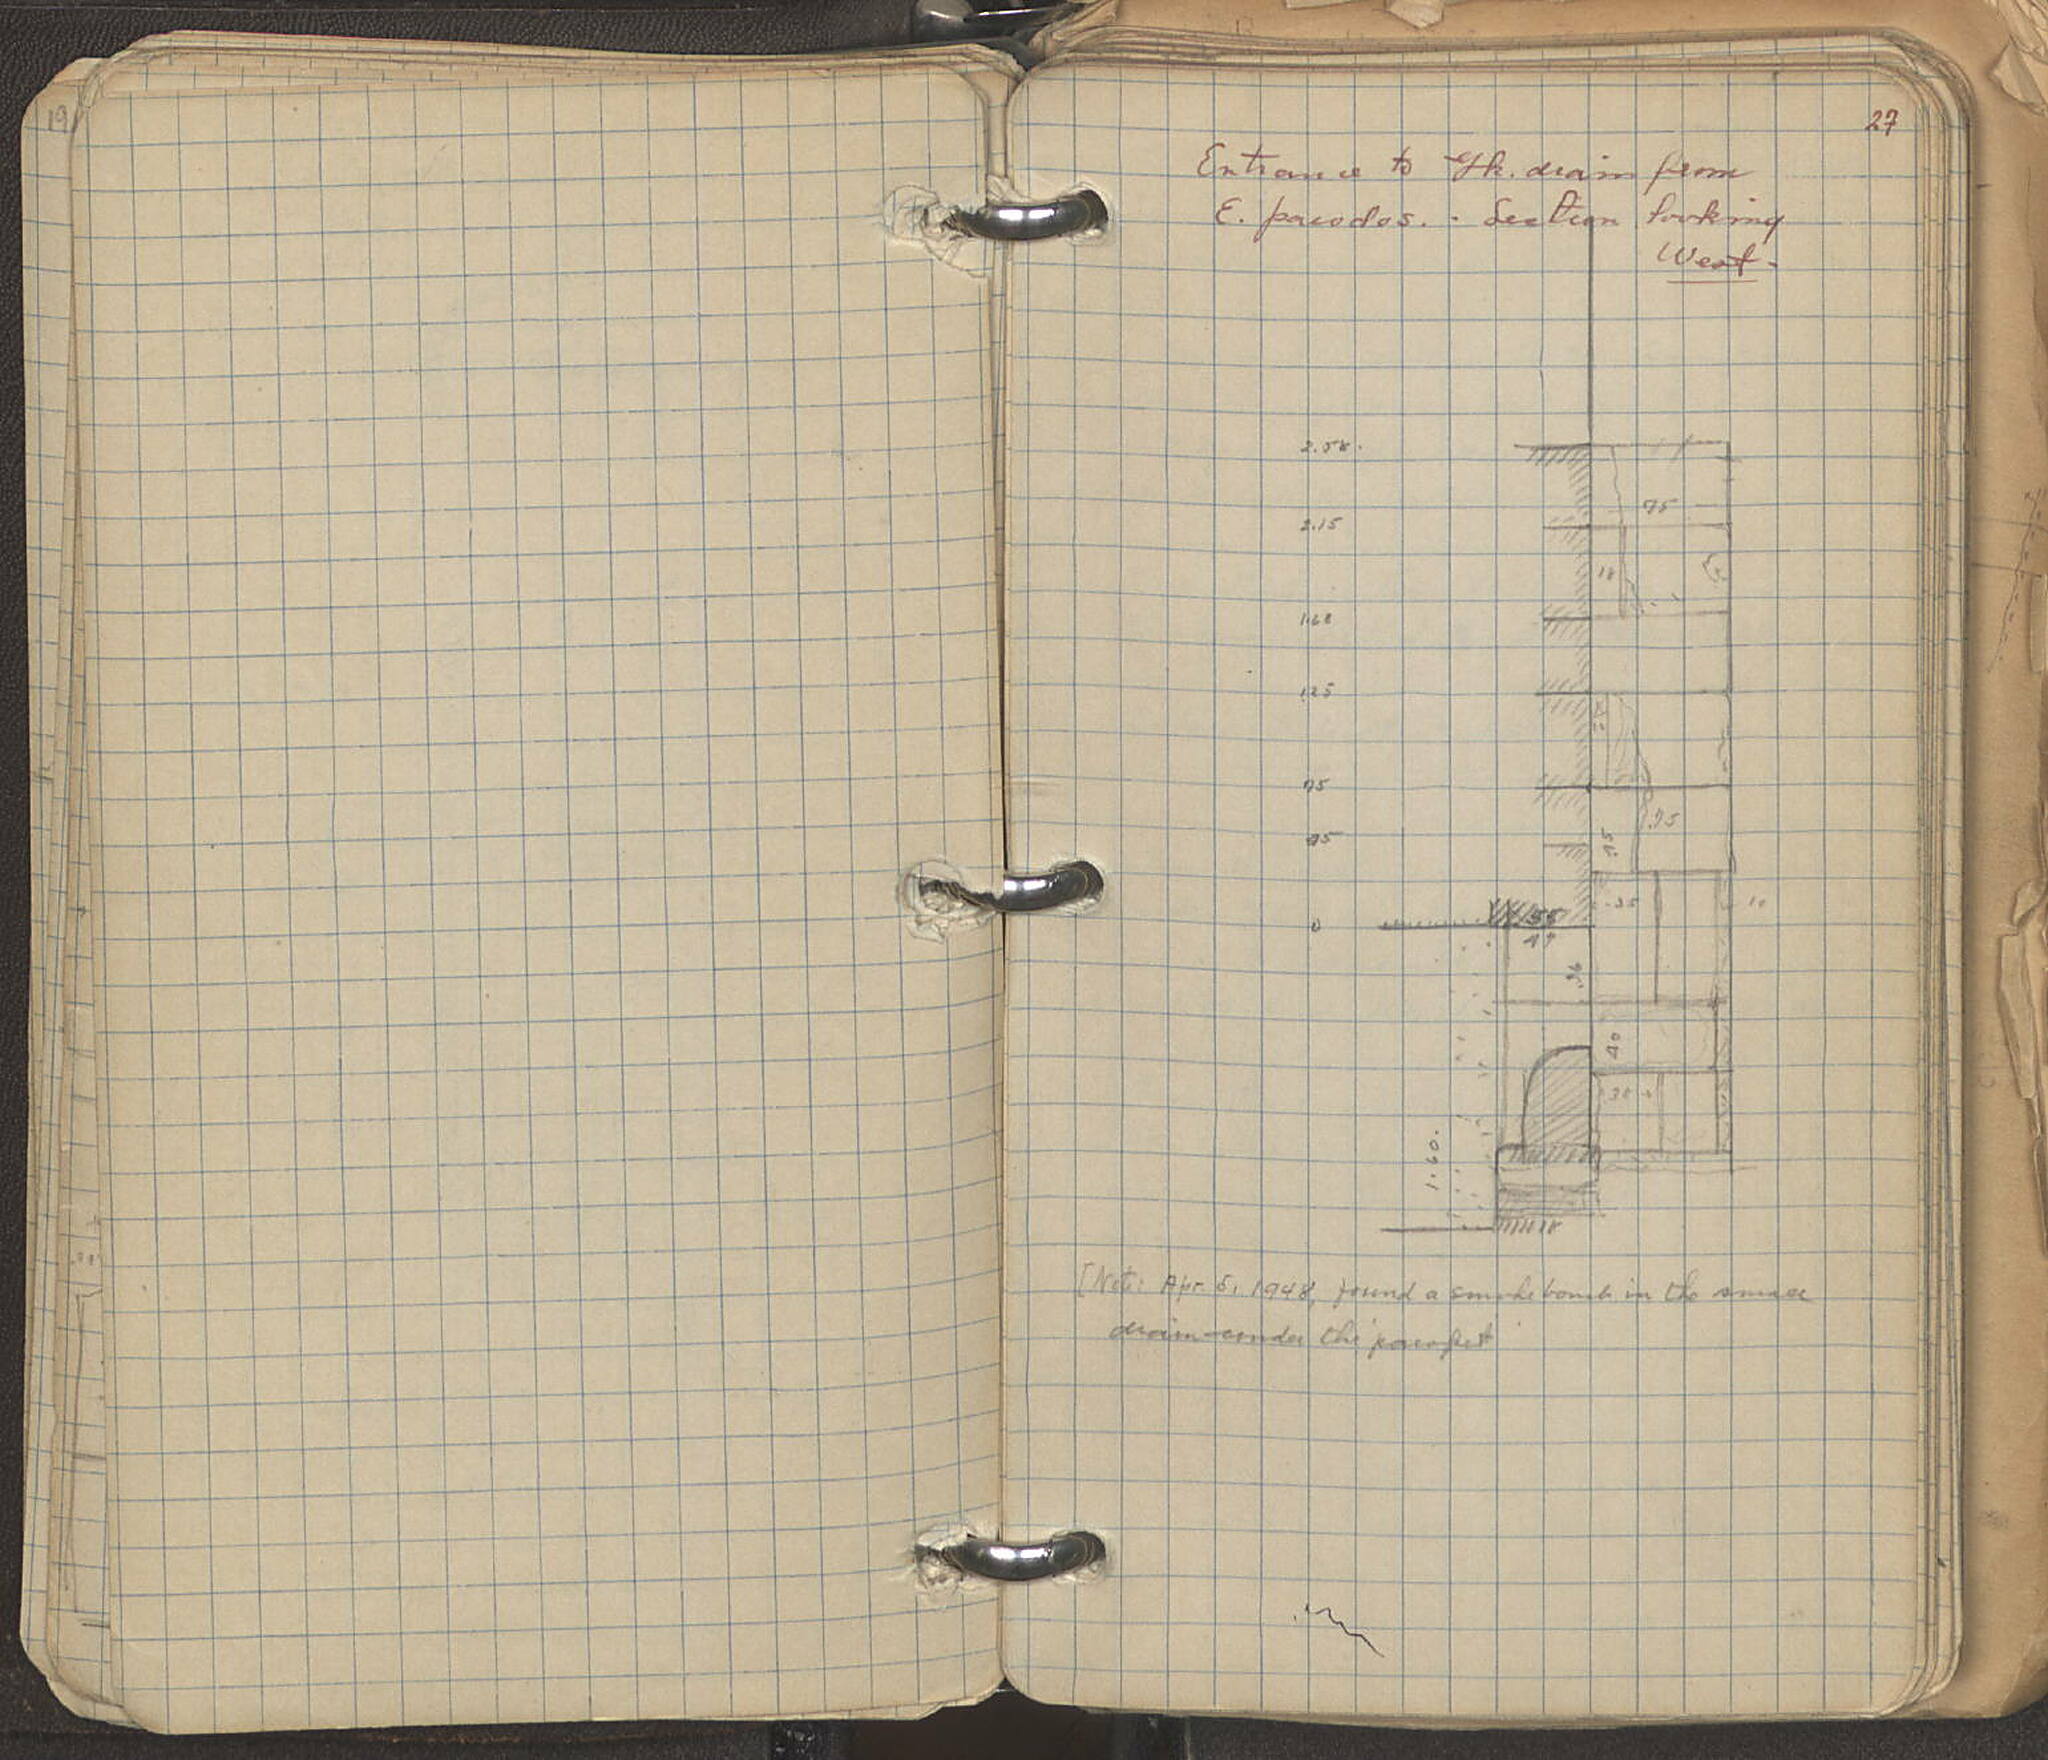 19
27
Entrance to Gk. drain from
E. parodos. - Section looking
West -
2.58.
75
2.15
18
1.68
1.25
75
.75
45
.45
.35
10
55
0
49
.36
40
38
1.60.
[Note: Apr. 5, 1948, found a smoke bomb in the small
drain under the parapet